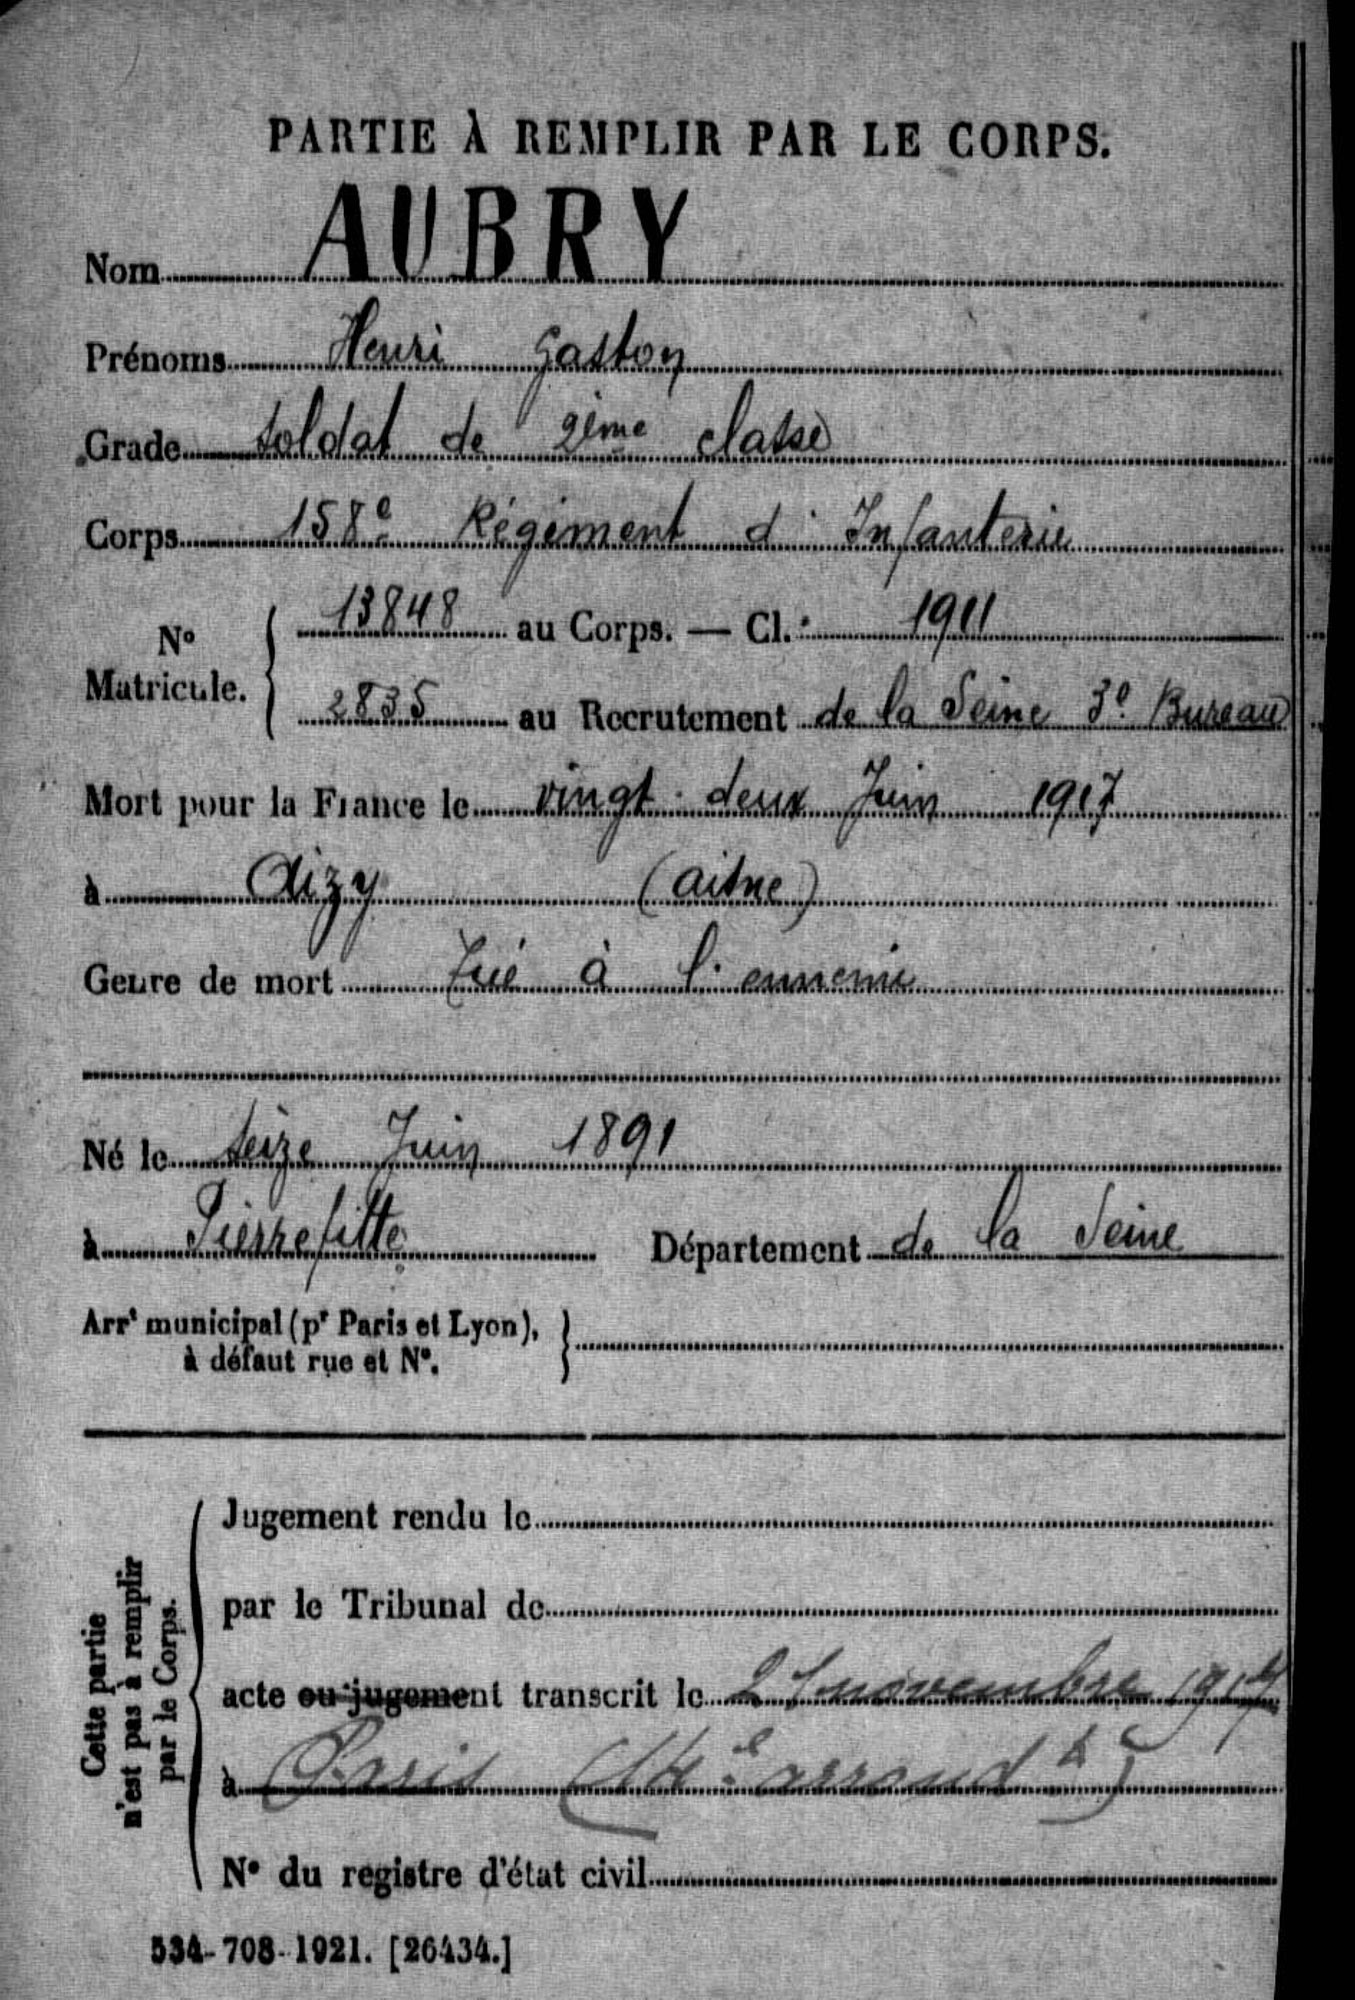 PARTIE À REMPLIR PAR LE CORPS.
Nom AUBRY
Prénoms Henri Gaston
Grade soldat de 2ème classe
Corps 158e Régiment d'Infanterie
N° Matricule. 13848 au Corps. — Cl. 1911
2835 au Recrutement de la Seine 3e Bureau
Mort pour la France le vingt-deux Juin 1917
à Aizy (aisne)
Genre de mort tué à l'ennemi
Né le seize Juin 1891
à Pierrefitte Département de la Seine
Arrt municipal (pr Paris et Lyon),
à défaut rue et N°.
Cette partie
n'est pas à remplir
par le Corps.
Jugement rendu le
par le Tribunal de
acte ou jugement transcrit le novembre 1917
à Paris (14e arrondt)
N° du registre d'état civil
534-708-1921. [26434.]